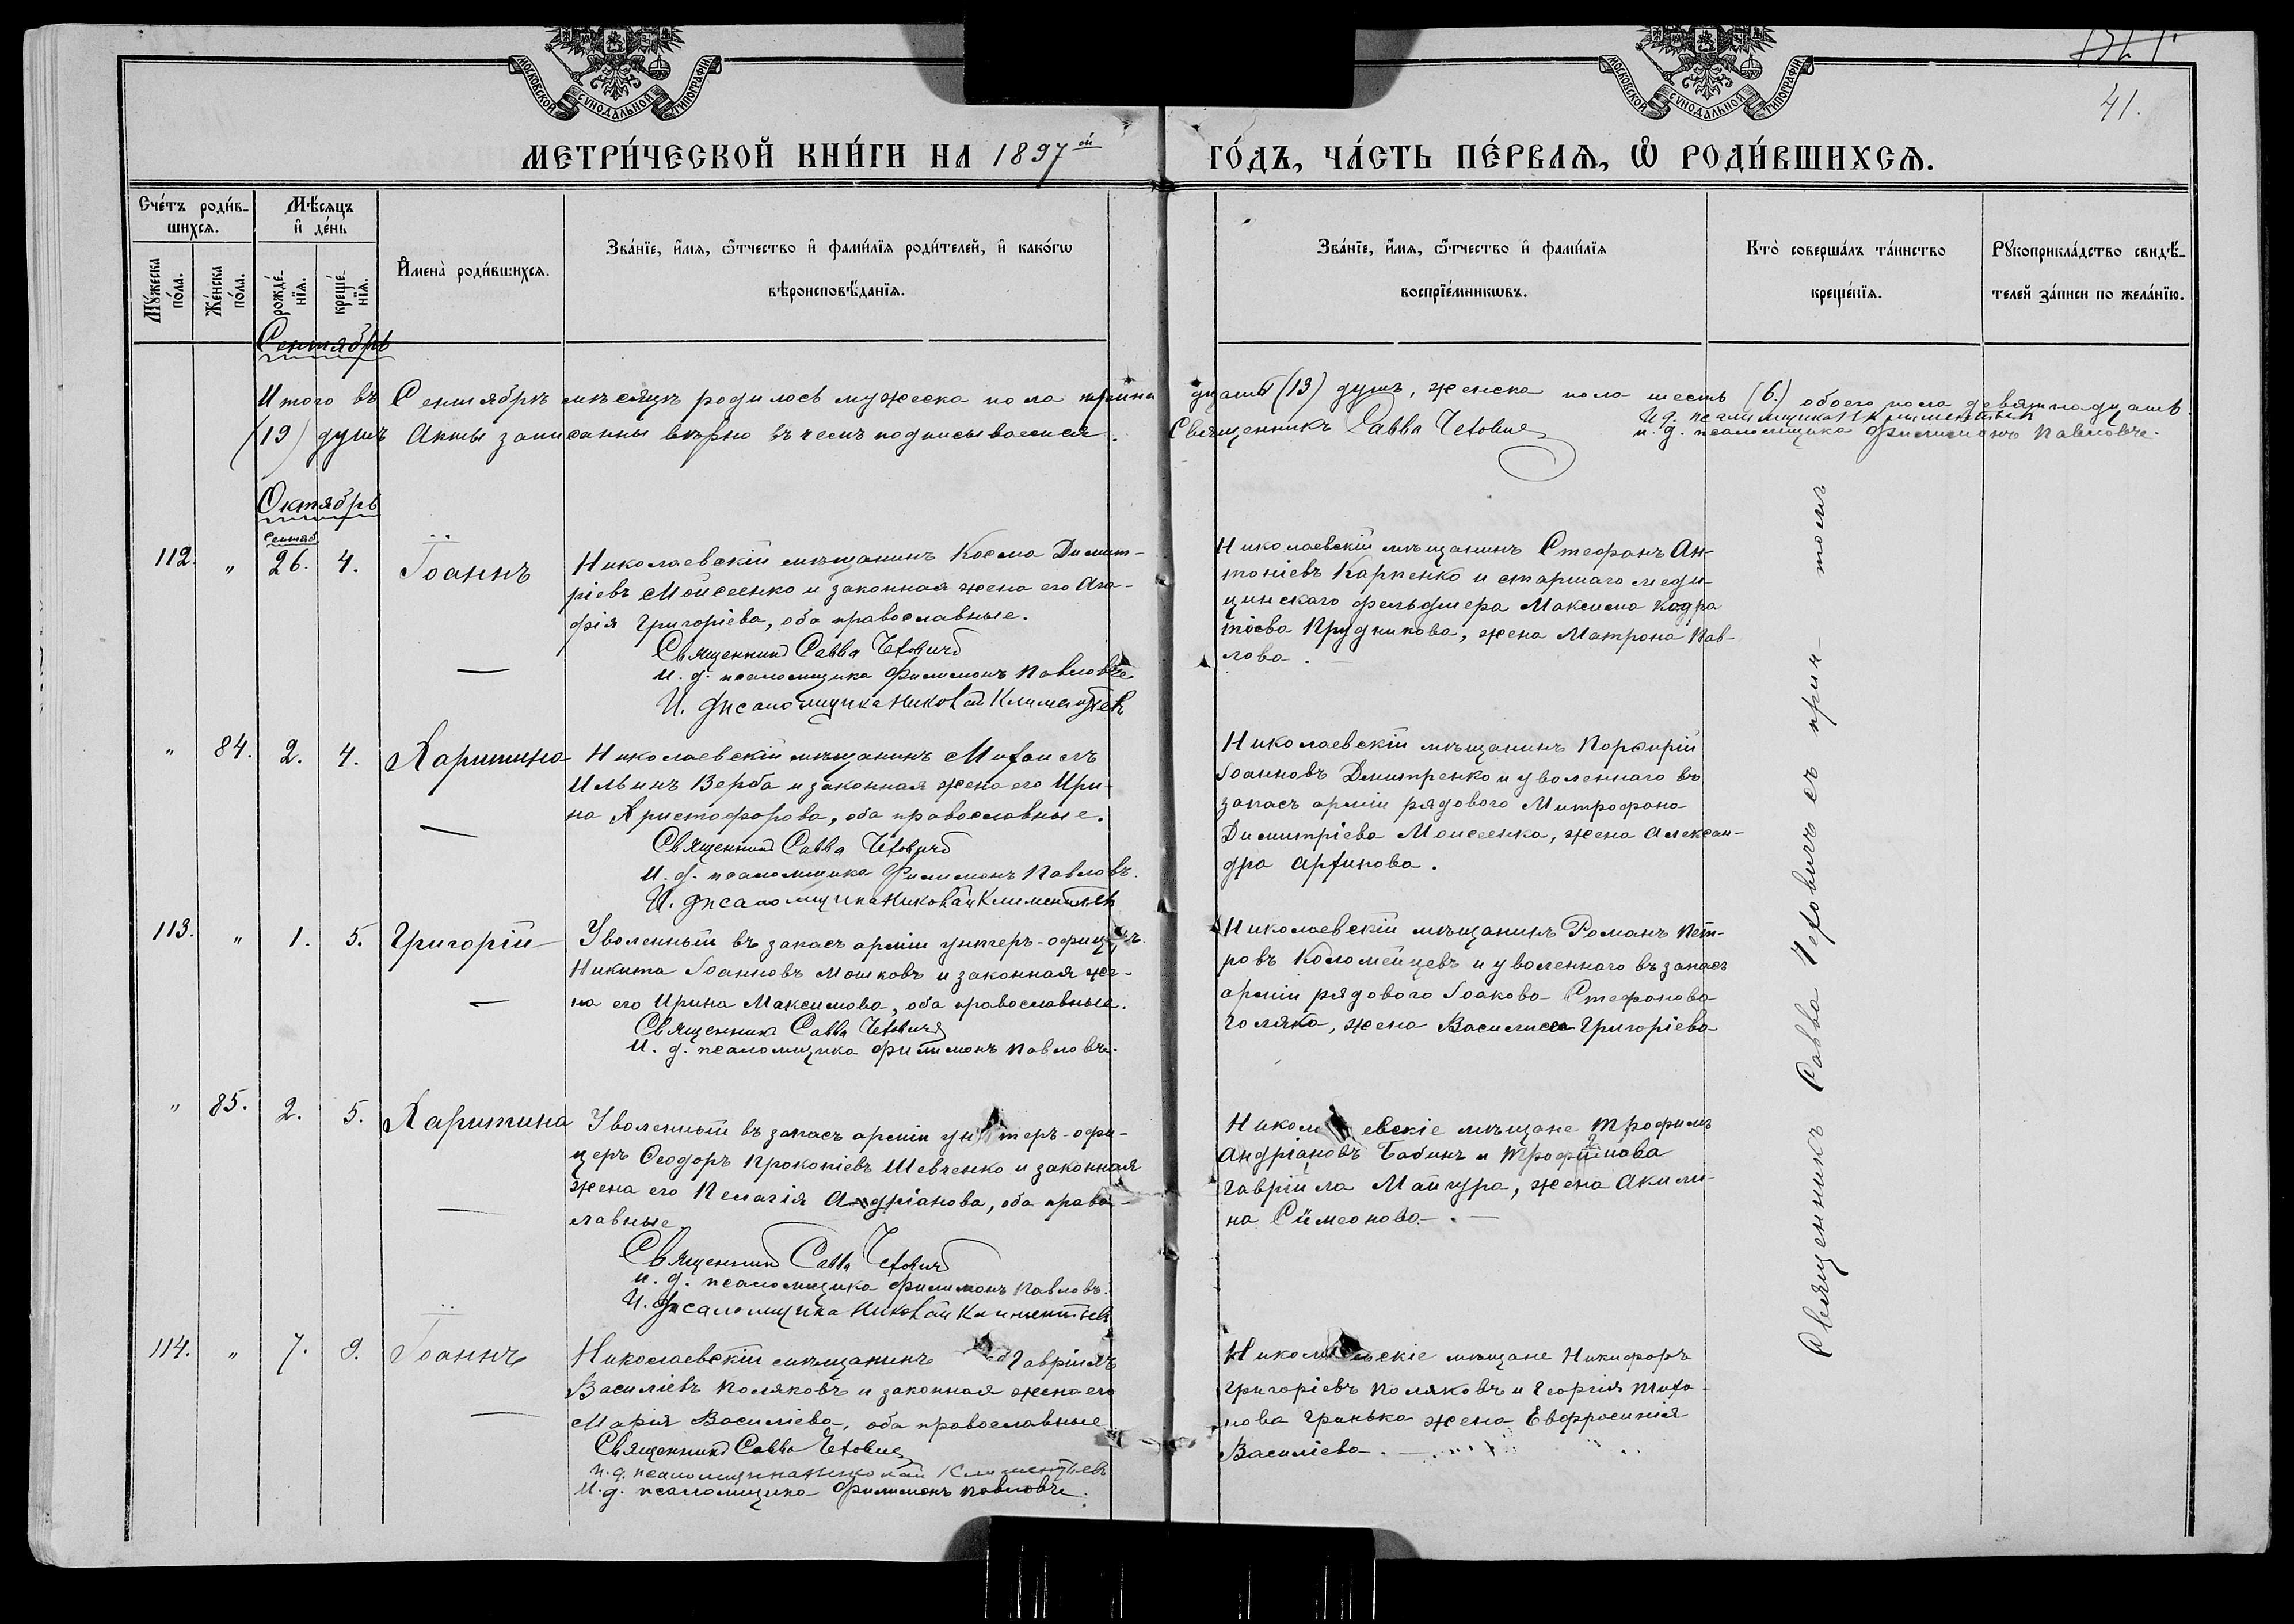 МОСКОВСКОЙ СѴНОДАЛЬНОЙ ТИПОГРАФІИ
МОСКОВСКОЙ СѴНОДАЛЬНОЙ ТИПОГРАФІИ
41.
МЕТРИ́ЧЕСКОЙ КНИ́ГИ НА 1897ой ГО́ДЪ, ЧА́СТЬ ПЕ́РВАѦ, Ѡ РОДИ́ВШИХСѦ.
Сче́тъ роди́в-
шихсѧ.
Мꙋ́жеска по́ла.
Же́нска по́ла.
Мѣ́сѧцъ
и҆ де́нь
рожде́-нїѧ.
креще́-нїѧ.
И҆мена̀ роди́вшихсѧ.
Зва́нїе, и҆́мѧ, ѻ҆́тчество и҆ фами́лїѧ роди́телей, и҆ како́гѡ
вѣроисповѣ́данїѧ.
Зва́нїе, и҆́мѧ, ѻ҆́тчество и҆ фами́лїѧ
воспрїе́мникѡвъ.
Кто̀ соверша́лъ та́инство
креще́нїѧ.
Рꙋкоприкла́дство свидѣ́-
телей за́писи по жела́нїю.
Сентябрь
Итого въ Сентябрѣ мѣсяцѣ родилось мужеска пола трина дцать (13) душъ, женска пола шесть (6) обоего пола девятнадцать
(19) душъ Акты записаны вѣрно въ чемъ подписываемся. Священникъ Савва Чехович
и. д. псаломщика Климентьев
и. д. псаломщика Филимонъ Павловъ.
Октябрь
Сентяб.
112. " 26. 4. Іоаннъ
Николаевскій мѣщанинъ Косма Димит-
ріевъ Моисеенко и законная жена его Ага-
фія Григоріева, оба православные.
Священникъ Савва Чеховичъ
И. д. псаломщика Филимонъ Павловъ
И. д псаломщика Николай Климентьев
Николаевскій мѣщанинъ Стефанъ Ан-
тоніевъ Карпенко и старшаго меди-
цинскаго фельдшера Максима Кодра
тіева Прудникова, жена Матрона Пав-
лова.
" 84. 2. 4. Харитина
Николаевскій мѣщанинъ Михаилъ
Ильинъ Верба и законная жена его Ири-
на Христофорова, оба православные.
Священникъ Савва Чеховичъ
И. д. псаломщика Филимонъ Павловъ.
И. д псаломщика Николай Климентьев
Николаевскій мѣщанинъ Порфирій
Іоанновъ Дмитренко и уволеннаго въ
запасъ арміи рядового Митрофана
Димитріева Моисеенка, жена Алексан-
дра Архипова.
113. " 1. 5. Григорій
Уволенный въ запасъ арміи унтеръ-офицеръ
Никита Іоанновъ Мошковъ и законная же-
на его Ирина Максимова, оба православные.
Священникъ Савва Чеховичъ
И. д. псаломщика Филимонъ Павловъ.
Николаевскій мѣщанинъ Романъ Пет-
ровъ Коломейцевъ и уволеннаго въ запасъ
арміи рядового Іоакова Стефанова
Голяка, жена Василисса Григоріева
" 85. 2. 5. Харитина
Уволенный въ запасъ арміи унтеръ-офи-
церъ Ѳеодоръ Прокопіевъ Шевченко и законная
жена его Пелагія Андріанова, оба право-
лавные
Священникъ Савва Чеховичъ
и. д. псаломщика Филимонъ Павловъ.
И. д псаломщика Николай Климентьев
Николаевскіе мѣщане Трофимъ
Андріановъ Бабинъ и Трофимова
Гавріила Майгура, жена Акили-
на Симеонова.
114. " 7. 9. Іоаннъ
Николаевскій мѣщанинъ Гавріилъ
Василіевъ Поляковъ и законная жена его
Марія Василіева, оба православные
Священникъ Савва Чехович
и. д. псаломщика Николай Климентьевъ
И. д. псаломщика Филимонъ Павловъ.
Николаевскіе мѣщане Никифоръ
Григоріевъ Поляковъ и Георгія Тихо-
нова Гринька жена Евфросинія
Василіева.
Священникъ Савва Чеховичъ съ прич- томъ